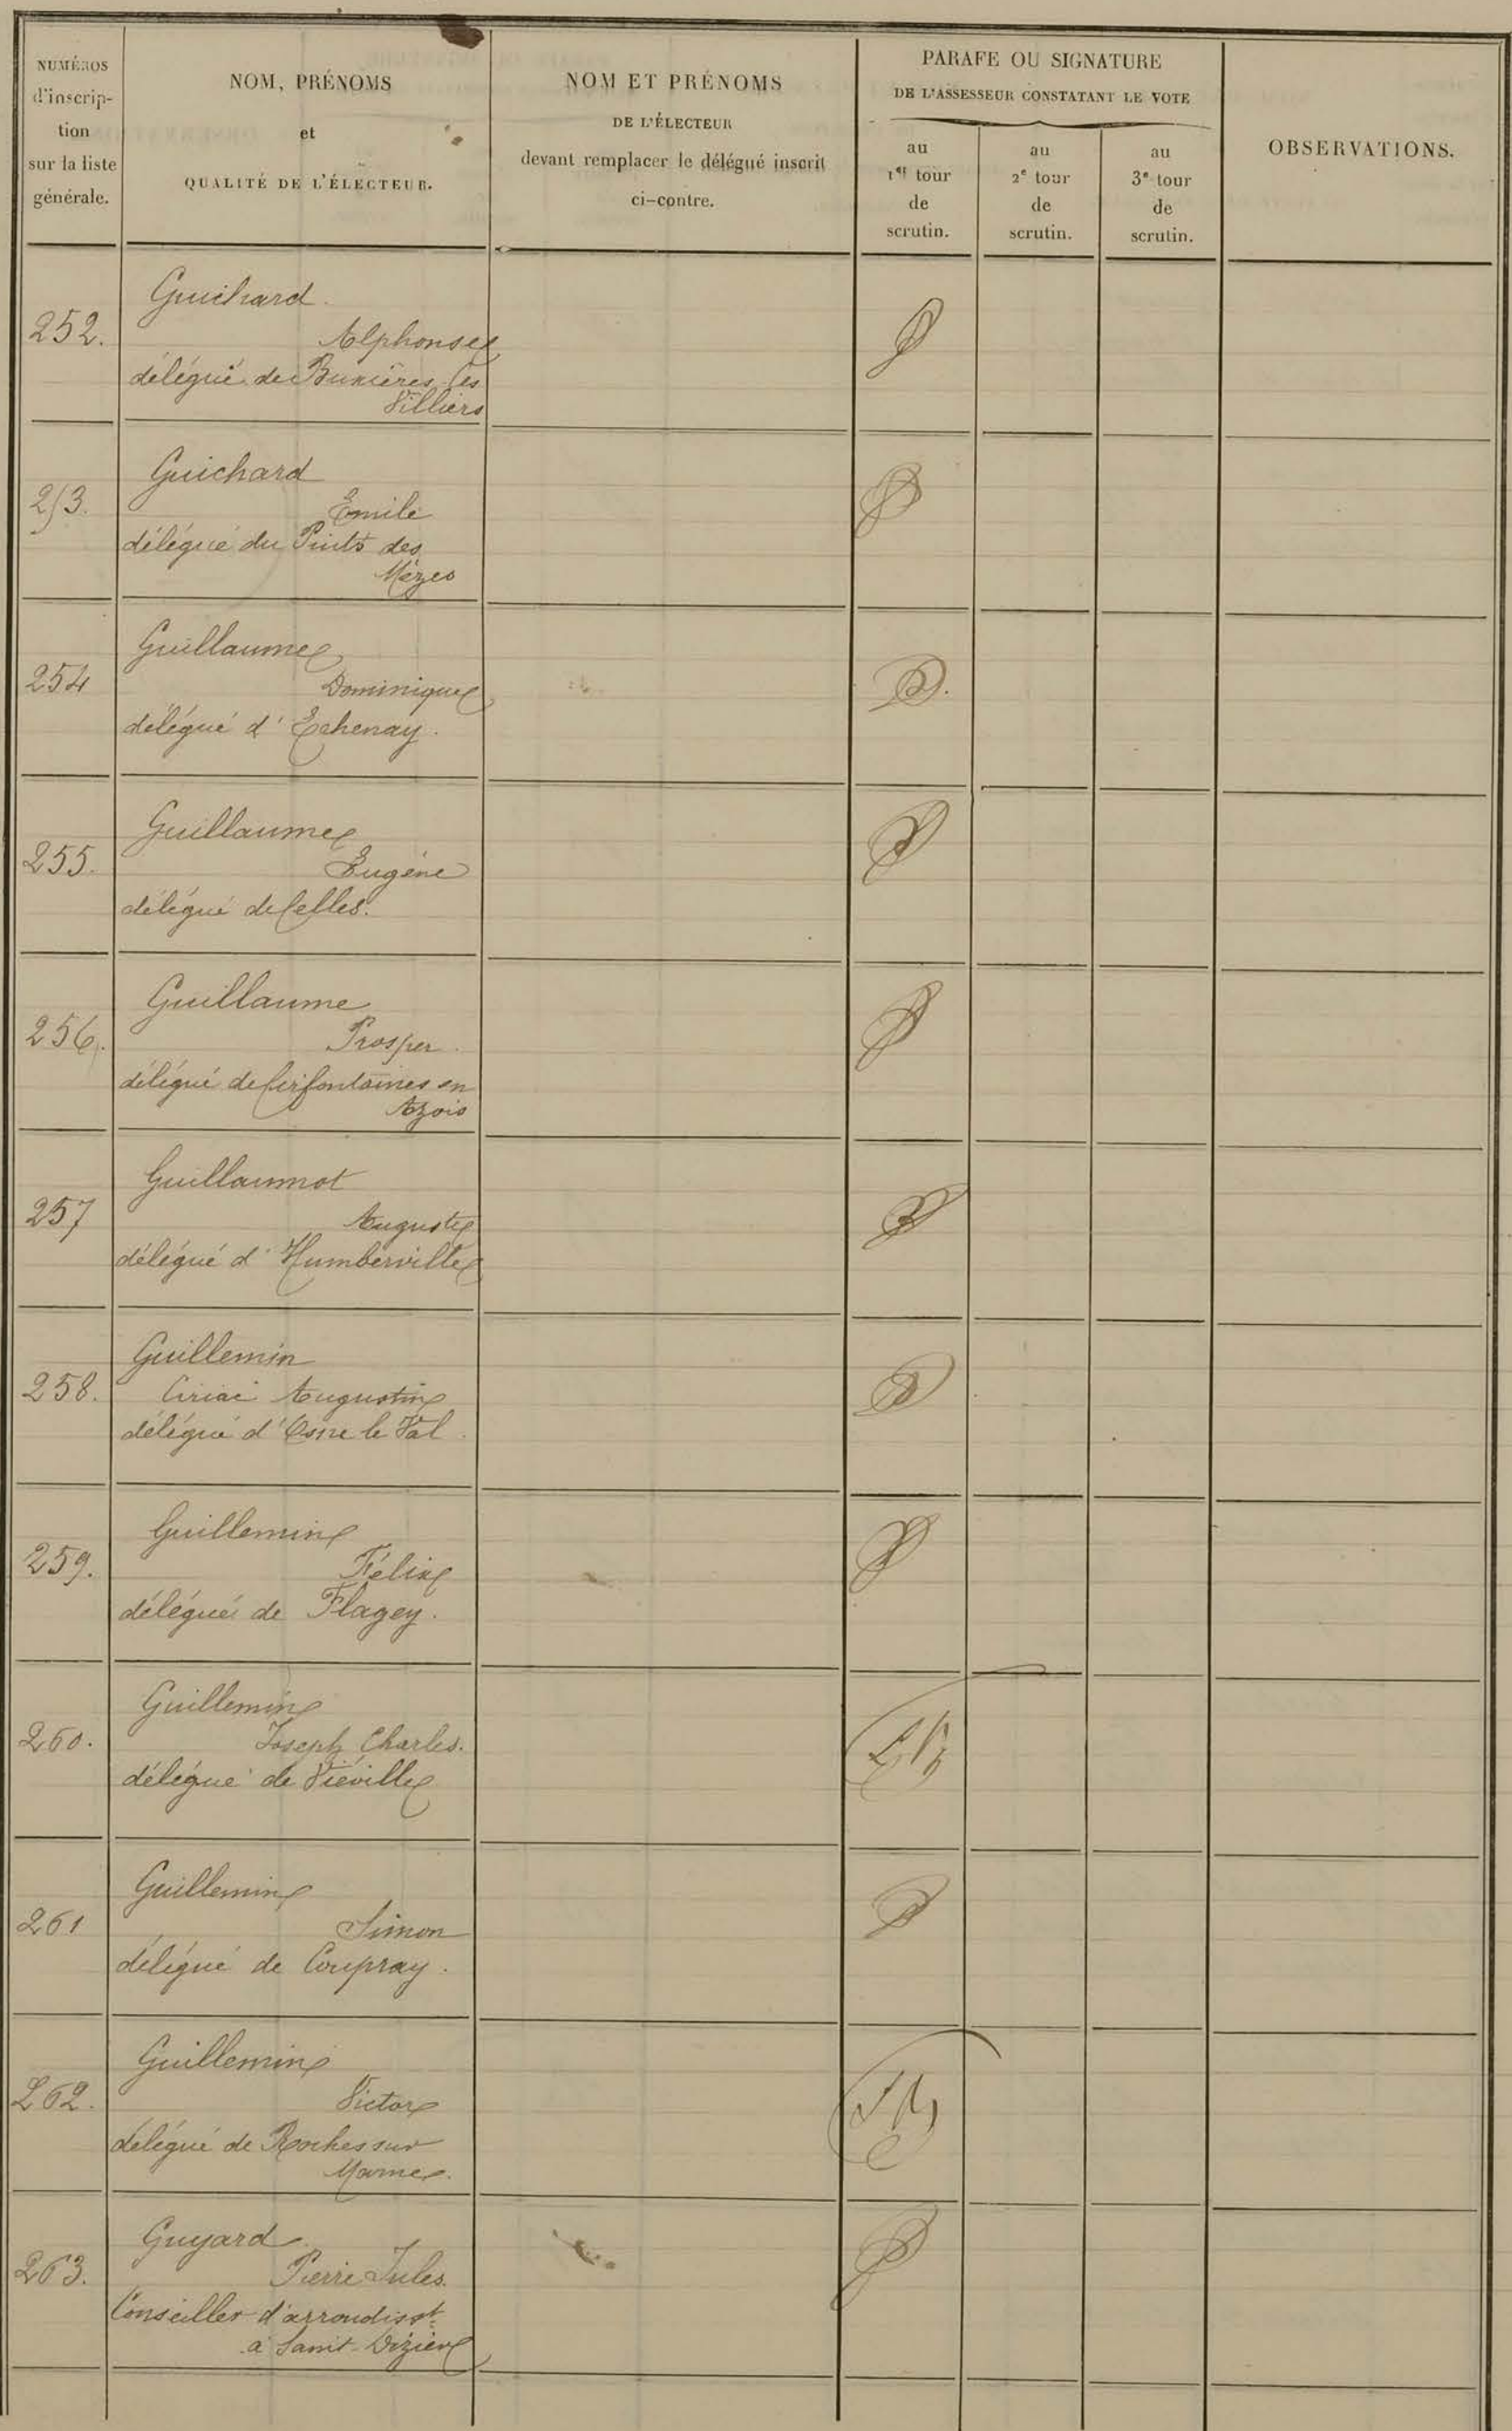 NUMÉROS
d'inscrip-
tion
sur la liste
générale.
NOM, PRÉNOMS
et
QUALITÉ DE L'ÉLECTEUR.
NOM ET PRÉNOMS
DE L'ÉLECTEUR
devant remplacer le délégué inscrit
ci-contre.
PARAFE OU SIGNATURE
DE L'ASSESSEUR CONSTATANT LE VOTE
au
1er tour
de
scrutin.
au
2e tour
de
scrutin.
au
3e tour
de
scrutin.
OBSERVATIONS.
252.
Guichard
Alphonse
délégué de Buxières les
Villiers
253.
Guichard
Emile
délégué du Puits des
Mèzes
254
Guillaume
Dominique
délégué d'Echenay.
255.
Guillaume
Eugène
délégué de Celles.
256.
Guillaume
Prosper.
délégué de Cirfontaines en
Azois
257
Guillaumot
Auguste
délégué d'Humberville
258.
Guillemin
Ciriac Augustin
délégué d'Osne le Val.
259.
Guillemin
Félix
délégué de Flagey.
260.
Guillemin
Joseph Charles.
délégué de Viéville
261
Guillemin
Simon
délégué de Coupray.
262.
Guillemin
Victor
délégué de Roches sur
Marne.
263.
Guyard
Pierre Jules.
Conseiller d'arrondisst
à Saint-Dizier